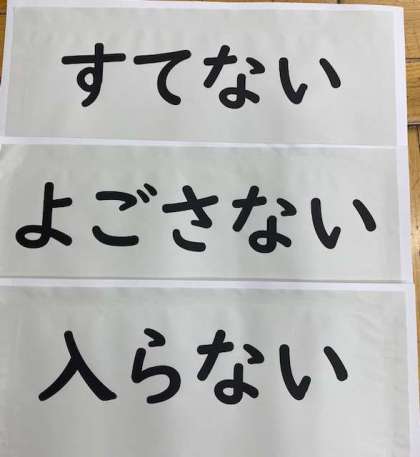 すてない
よごさない
入らない